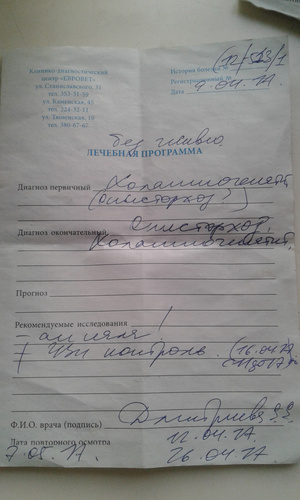 Клинико диагностический
центр «ЕВРОВЕТ»
ул. Станиславского, 21
тел. 353-31-39
ул. Каменская, 45
тел. 224-32-11
ул. Тюленина, 10
тел. 380-67-67
История болезни № 12/513/1
Регистрационный №
Дата 9.04.17.
ЛЕЧЕБНАЯ ПРОГРАММА
Диагноз первичный Холангиогепатит
(Описторхоз?)
Диагноз окончательный Описторхоз,
Холангиогепатит.
Прогноз
Рекомендуемые исследования !
УЗИ контроль. (16.04.17
Ф.И.О. врача (подпись) Дмитриева
Дата повторного осмотра 12.04.17.
7.05.17. 26.04.17